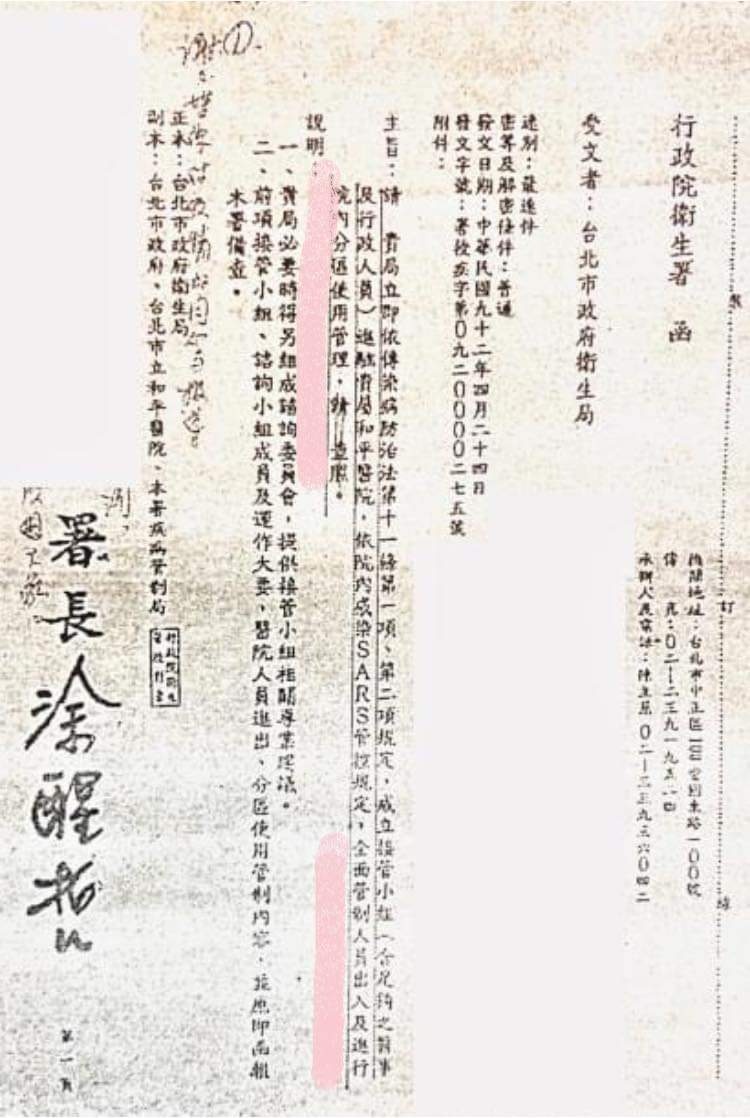 裝
訂
線
行政院衛生署 函
機關地址：台北市中正區愛國東路一00號
傳 真：0二—二三九一九五一四
承辦人及電話：陳主原 0二—二三九三六0四二
受文者：台北市政府衛生局
速別：最速件
密等及解密條件：普通
發文日期：中華民國九十二年四月二十四日
發文字號：署授疾字第0九二0000二七五號
附件：
主旨：請 貴局立即依傳染病防治法第十一條第一項、第二項規定，成立接管小組（含足夠之醫事
及行政人員）進駐貴局和平醫院，依院內感染SARS管控規定，全面管制人員出入及進行
院內分區使用管理，請 查照。
說明：
一、貴局必要時得另組成諮詢委員會，提供接管小組相關專業建議。
二、前項接管小組、諮詢小組成員及運作大要、醫院人員進出、分區使用管制內容，並應即函報
本署備查。
正本：台北市政府衛生局
副本：台北市政府、台北市立和平醫院、本署疾病管制局
署長涂醒哲
第一頁